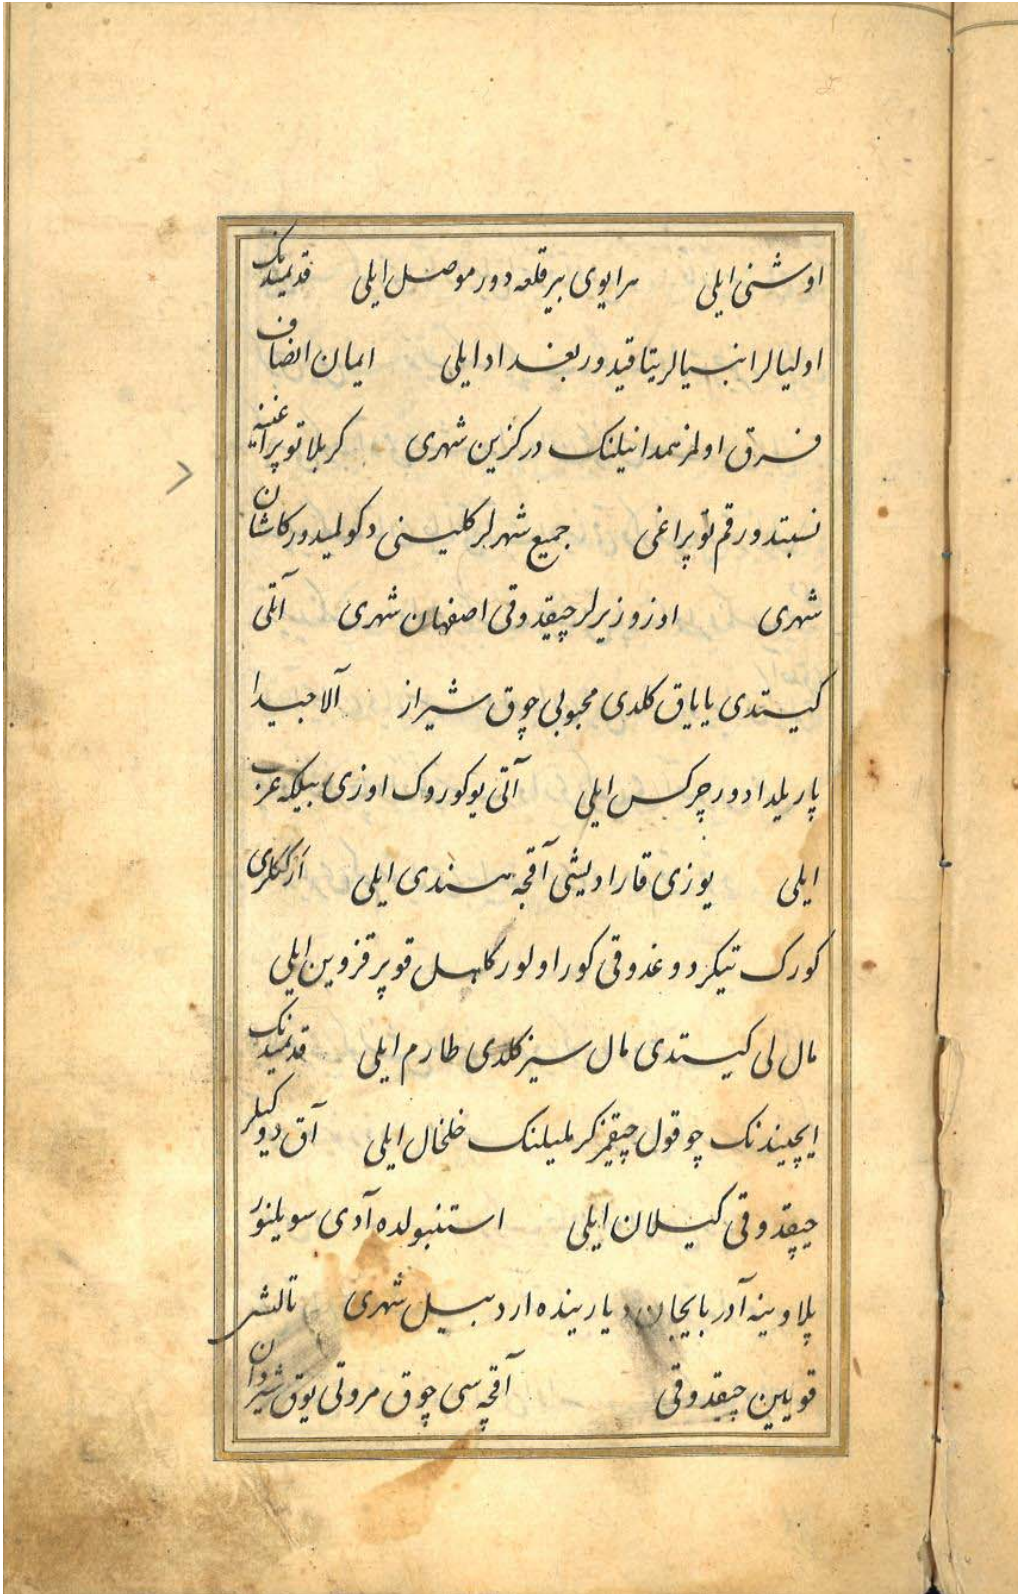 اوشنی ایلی هرایوی بیر قلعه دور موصل ایلی قدیمیدنک
اولیالر انبیالر یتاقیدور بغداد ایلی ایمان انصاف
فرق اولمز همدانیلنک درکزین شهری کربلا توپراغنیه
نسبتدور قم توپراغی جمیع شهرلر کلینی دکولمیدور کاشان
شهری اوز وزیرلر چیقدوقی اصفهان شهری آتلی
کیستدی یایاق کلدی محبوبی چوق شیراز آلاجیدا
پاریلدادور چرکس ایلی آتی یوکوروک اوزی بییکه عرب
ایلی یوزی قارا دیشی آقچه هندی ایلی ارککلری
کورک تیکر دوغدوقی کور اولور کاهل قوپر قزوین ایلی
مال لی کیستدی مال سیز کلدی طارم ایلی قدیمیدنک
ایچیندنک چوقول چیقمز کرملیلنک خلخال ایلی آق دوکیلر
چیقدوقی کیلان ایلی استنبولده آدی سویلنور
پلاوینه آدربایجان دیارینده اردبیل شهری تالش
قویین چیقدوقی آقچه سی چوق مروتی یوق شیروان